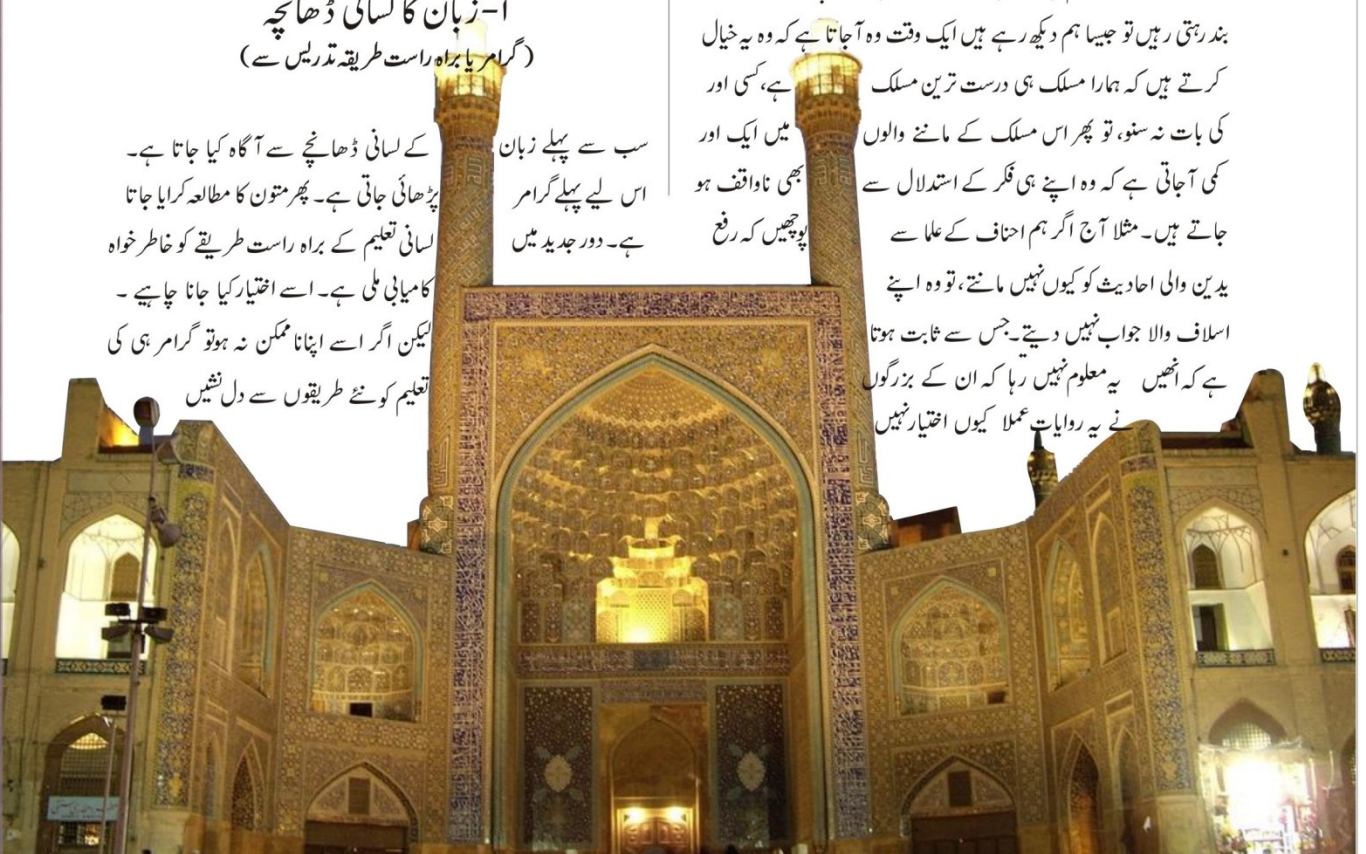 بند رہتی رہیں تو جیسا ہم دیکھ رہے ہیں ایک وقت وہ آجاتا ہے کہ وہ یہ خیال
کرتے ہیں کہ ہمارا مسلک ہی درست ترین مسلک ہے، کسی اور
کی بات نہ سنو، تو پھر اس مسلک کے ماننے والوں میں ایک اور
کمی آجاتی ہے کہ وہ اپنے ہی فکر کے استدلال سے بھی ناواقف ہو
جاتے ہیں۔ مثلا آج اگر ہم احناف کے علما سے پوچھیں کہ رفع
یدین والی احادیث کو کیوں نہیں مانتے، تو وہ اپنے
اسلاف والا جواب نہیں دیتے۔ جس سے ثابت ہوتا
ہے کہ انھیں یہ معلوم نہیں رہا کہ ان کے بزرگوں
نے یہ روایات عملا کیوں اختیار نہیں
۱-زبان کا لسانی ڈھانچہ
(گرامر یا براہ راست طریقہ تدریس سے)
سب سے پہلے زبان کے لسانی ڈھانچے سے آگاہ کیا جاتا ہے۔
اس لیے پہلے گرامر پڑھائی جاتی ہے۔ پھر متون کا مطالعہ کرایا جاتا
ہے۔ دور جدید میں لسانی تعلیم کے براہ راست طریقے کو خاطر خواہ
کامیابی ملی ہے۔ اسے اختیار کیا جانا چاہیے ۔
لیکن اگر اسے اپنانا ممکن نہ ہو تو گرامر ہی کی
تعلیم کو نئے طریقوں سے دل نشیں